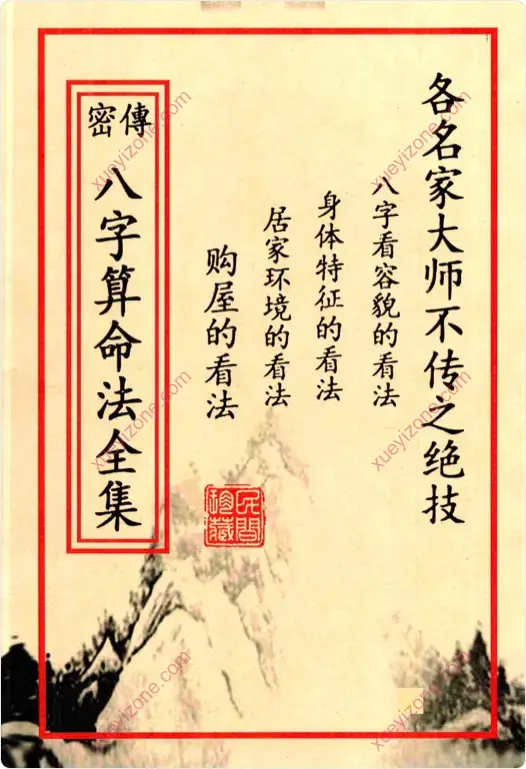 各名家大师不传之绝技
八字看容貌的看法
身体特征的看法
居家环境的看法
购屋的看法
民間珍藏
密傳
八字算命法全集
xueyizone.com
xueyizone.com
xueyizone.com
xueyizone.com
xueyizone.com
xueyizone.com